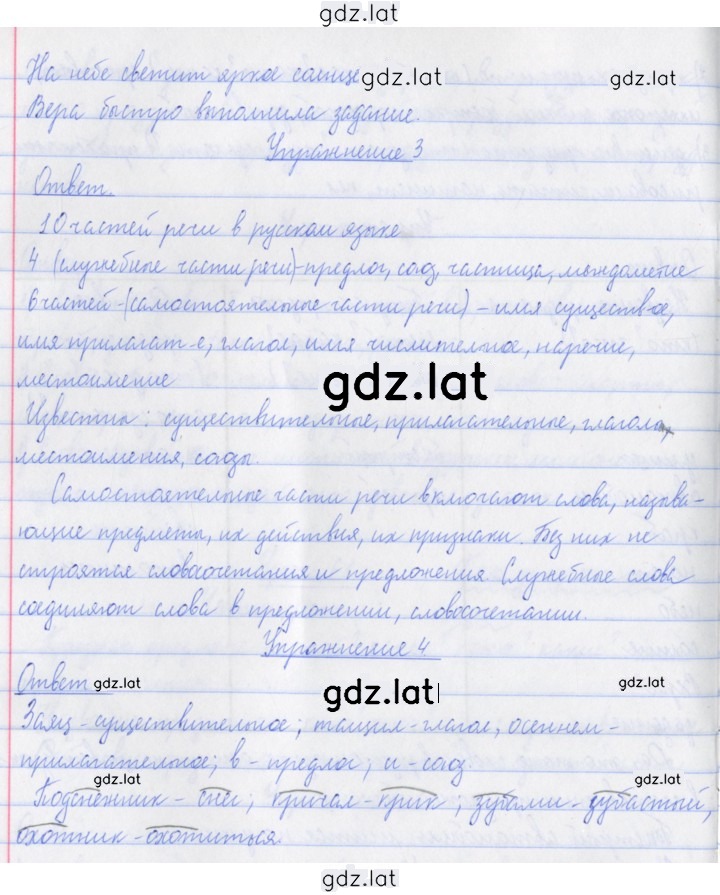 gdz.lat
На небе светит яркое солнце gdz.lat gdz.lat
Вера быстро выполнила задание.
Упражнение 3
Ответ.
10 частей речи в русском языке
4 (служебные части речи)-предлог, союз, частица, междометие
6 частей-(самостоятельные части речи) - имя существ-ое,
имя прилагат-е, глагол, имя числительное, наречие,
местоимение
gdz.lat
Известны: существительные, прилагательные, глаголы,
местоимения, союзы.
Самостоятельные части речи включают слова, называ-
ющие предметы, их действия, их признаки. Без них не
строятся словосочетания и предложения. Служебные слова
соединяют слова в предложении, словосочетании.
Упражнение 4
Ответ gdz.lat gdz.lat gdz.lat
Заяц - существительное; тащил - глагол, осеннем -
прилагательное; в - предлог; и - союз
gdz.lat gdz.lat gdz.lat
Подснежник - снег; кричал - крик; зубами - зубастый,
охотник - охотиться.
gdz.lat